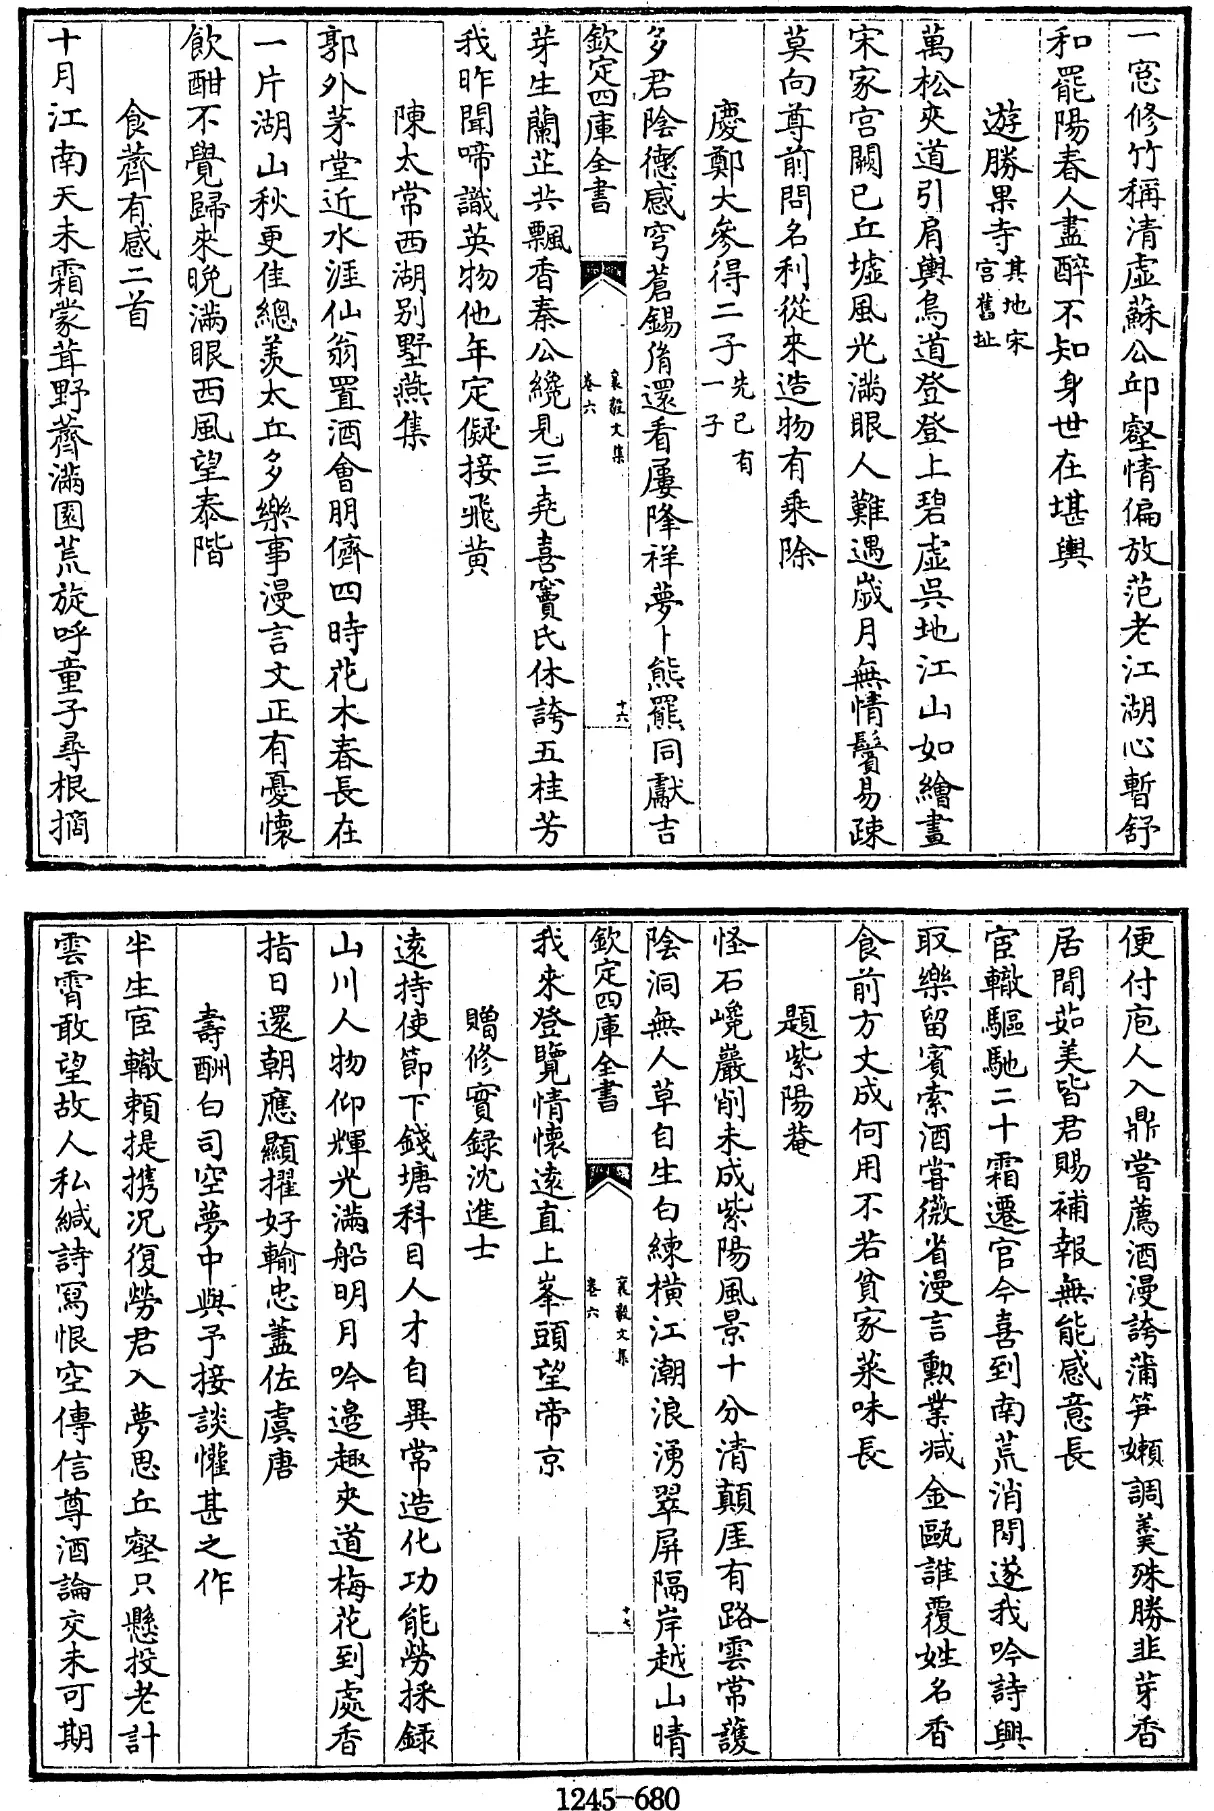 一窓修竹稱清虛蘇公邱壑情偏放范老江湖心暫舒
和罷陽春人盡醉不知身世在堪輿
遊勝果寺其地宋宫舊址
萬松夾道引肩輿鳥道登登上碧虛吳地江山如繪畫
宋家宫闕已丘墟風光滿眼人難遇歲月無情鬢易疎
莫向尊前問名利從來造物有乘除
慶鄭大參得二子先已有一子
多君陰德感穹蒼錫胤還看屢降祥夢卜熊羆同獻吉
欽定四庫全書
襄毅文集
卷六
十六
芽生蘭茁共飄香秦公纔見三堯喜竇氏休誇五桂芳
我昨聞啼識英物他年定儗接飛黄
陳太常西湖别墅燕集
郭外茅堂近水涯仙翁置酒會朋儕四時花木春長在
一片湖山秋更佳總羨太丘多樂事漫言文正有憂懷
飲酣不覺歸來晚滿眼西風望泰階
食薺有感二首
十月江南天未霜蒙茸野薺滿園荒旋呼童子尋根摘
便付庖人入鼎嘗薦酒漫誇蒲笋嫰調羹殊勝韭芽香
居間茹美皆君賜補報無能感意長
宦轍驅馳二十霜遷官今喜到南荒消閒遂我吟詩興
取樂留賓索酒嘗薇省漫言勳業减金甌誰覆姓名香
食前方丈成何用不若貧家菜味長
題紫陽菴
怪石巉巖削未成紫陽風景十分清顛厓有路雲常護
陰洞無人草自生白練横江潮浪湧翠屏隔岸越山晴
欽定四庫全書
襄毅文集
卷六
十七
我來登覽情懷遠直上峯頭望帝京
贈修實録沈進士
遠持使節下錢塘科目人才自異常造化功能勞採録
山川人物仰輝光滿船明月吟邉趣夾道梅花到處香
指日還朝應顯擢好輸忠藎佐虞唐
壽酬白司空夢中與予接談懽甚之作
半生宦轍賴提携况復勞君入夢思丘壑只懸投老計
雲霄敢望故人私緘詩寫恨空傳信尊酒論交未可期
1245-680